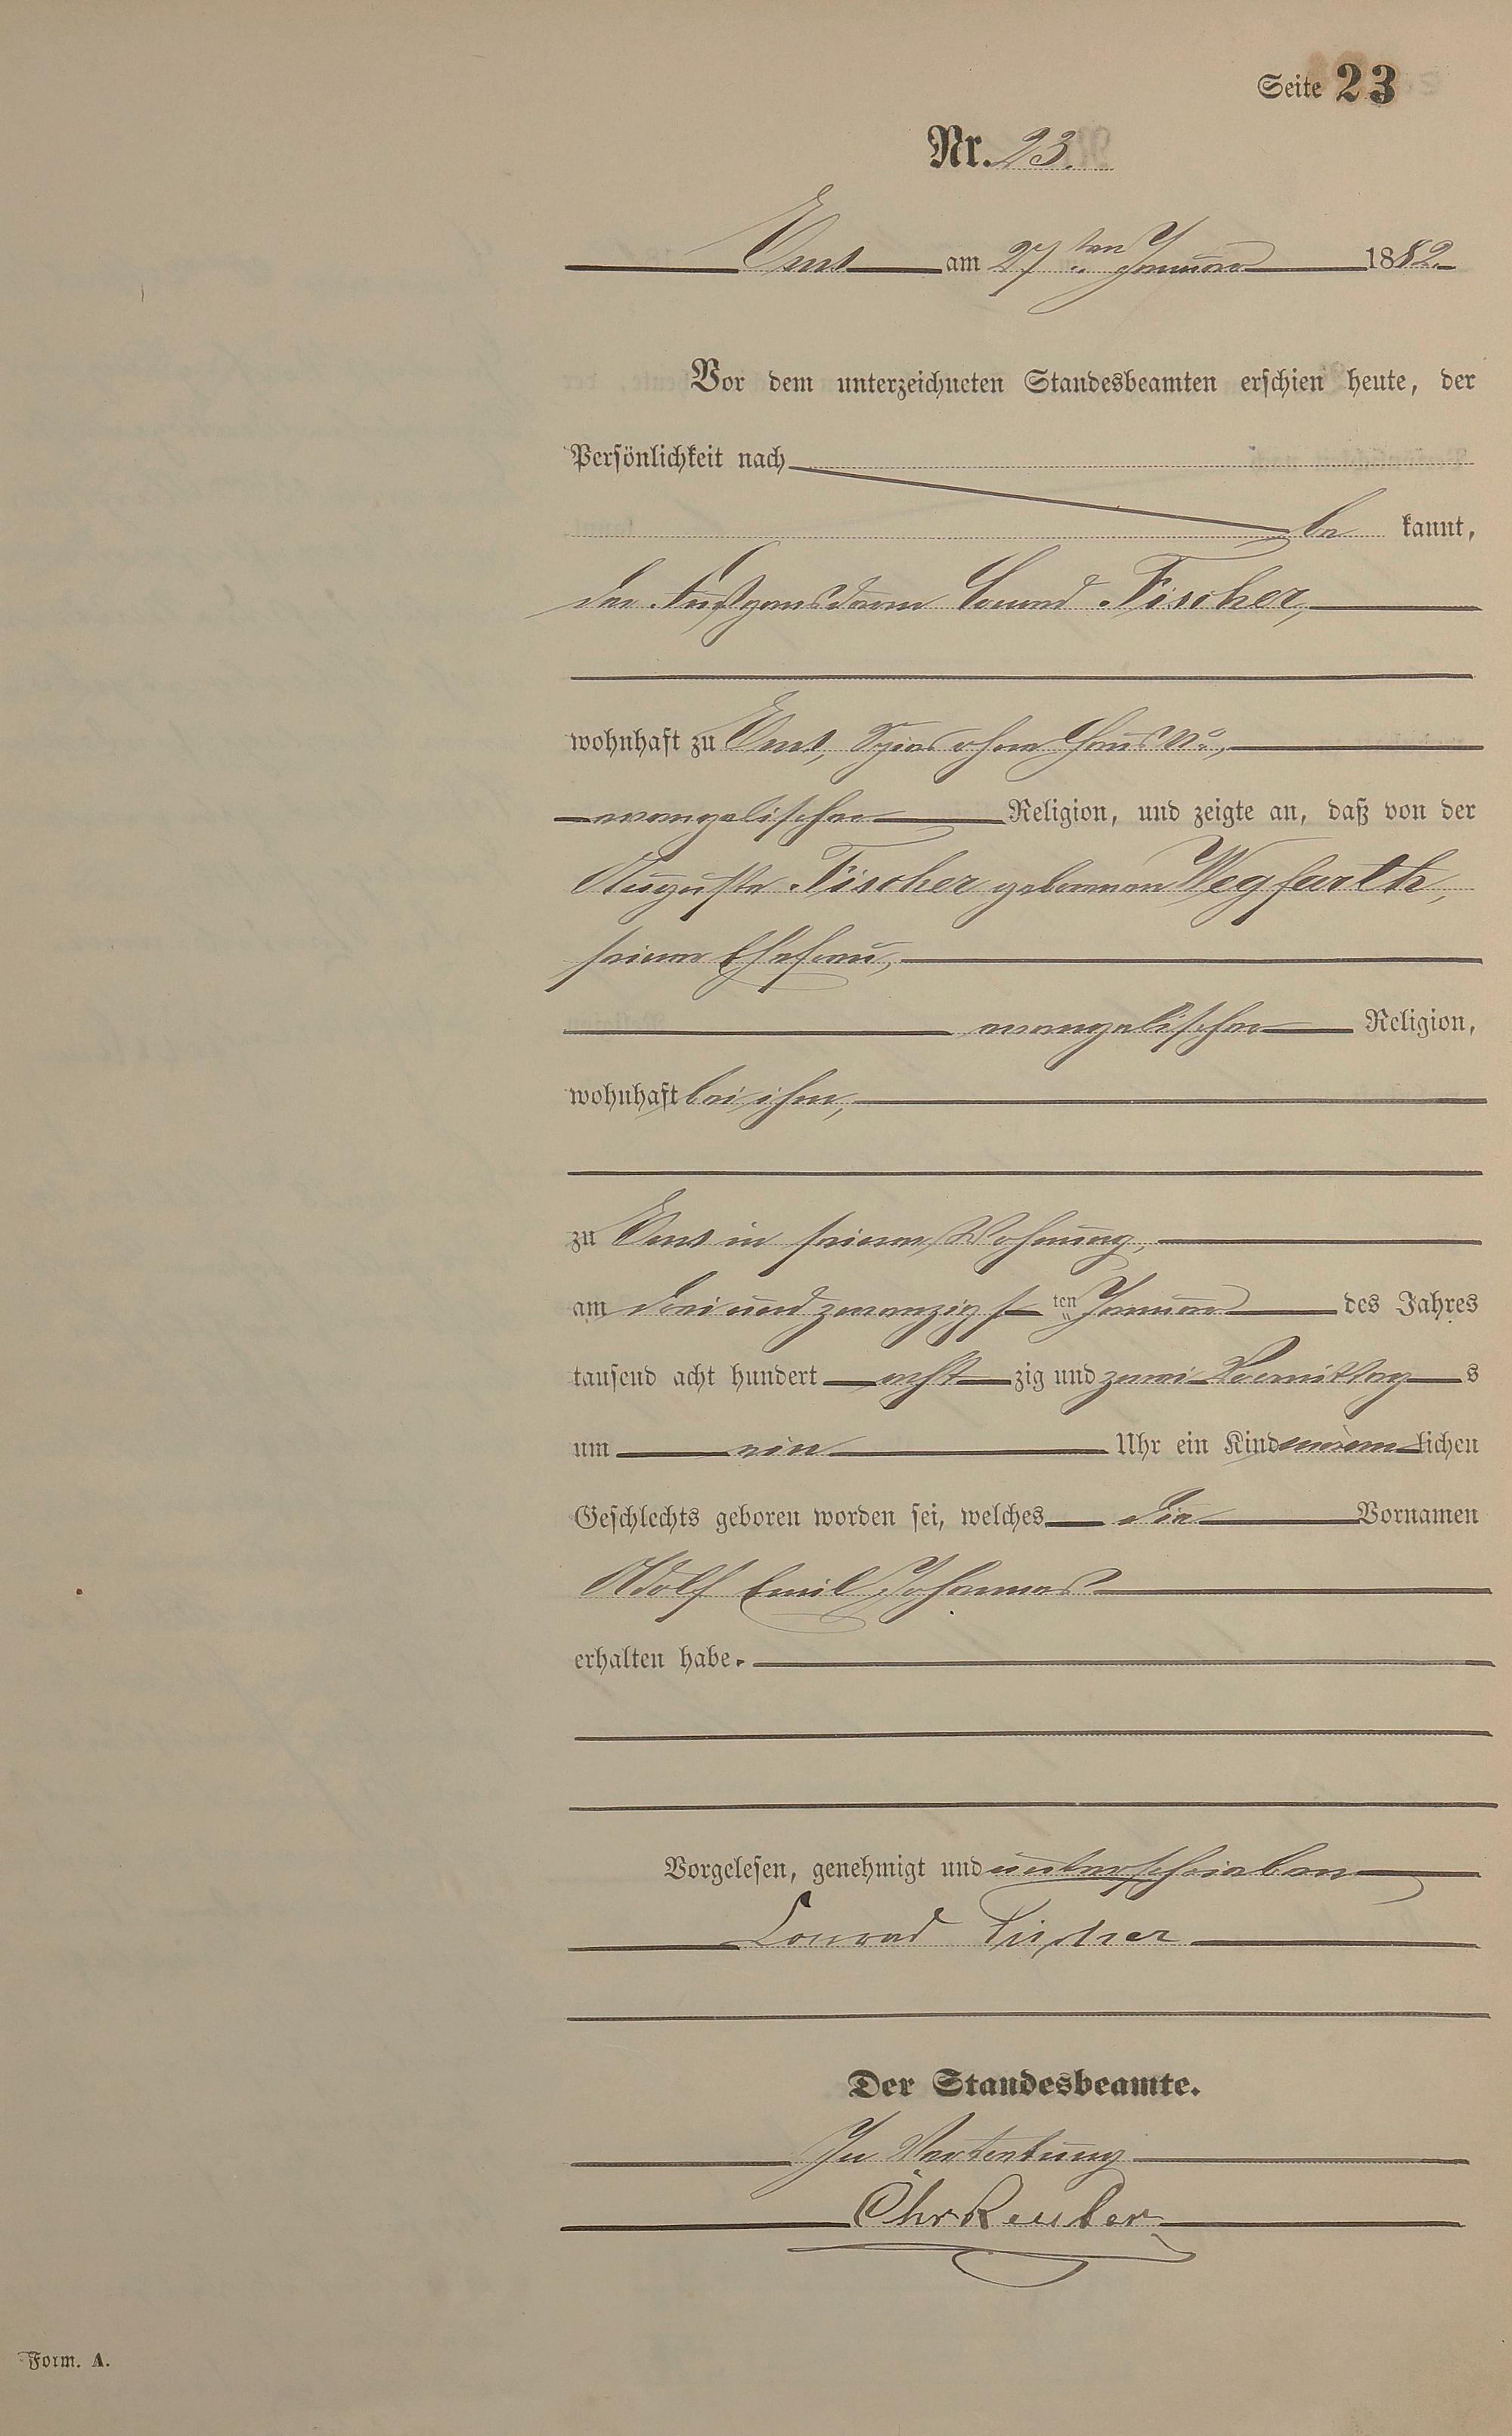 Seite 23
Nr. 23.
Ems am 27ten Januar 1882.
Vor dem unterzeichneten Standesbeamten erschien heute, der
Persönlichkeit nach
be kannt,
der Fußgendarm Conrad Fischer,
wohnhaft zu Ems, Spies ohne Haus No,
evangelischer Religion, und zeigte an, daß von der
Auguste Fischer geborenen Wegfarth,
seiner Ehefrau,
evangelischer Religion,
wohnhaft bei ihm,
zu Ems in seiner Wohnung,
am drei und zwanzigsten Januar des Jahres
tausend acht hundert acht zig und zwei Vormittag s
um ein Uhr ein Kind männ lichen
Geschlechts geboren worden sei, welches die Vornamen
Adolf Emil Johannes
erhalten habe.
Vorgelesen, genehmigt und unterschrieben
Conrad Fischer
Der Standesbeamte.
In Vertretung
Chr Reuter
Form. A.